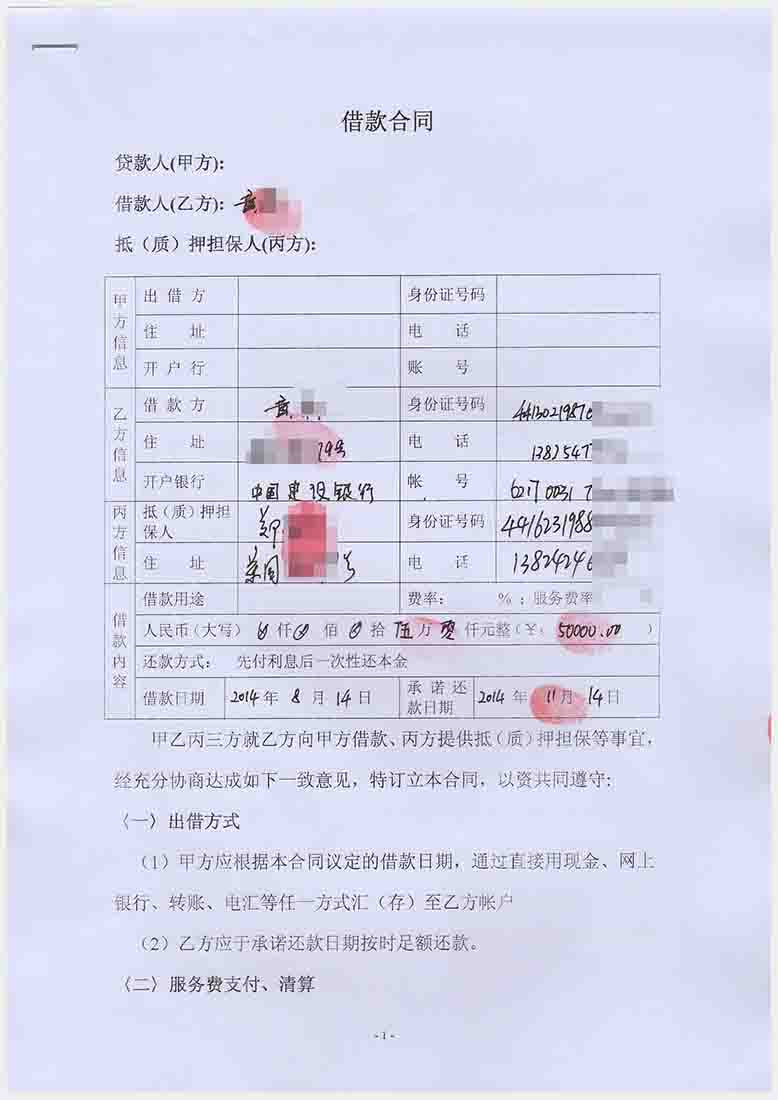 借款合同
贷款人(甲方):
借款人(乙方):
抵（质）押担保人(丙方):
甲方信息
出借方 身份证号码
住 址 电 话
开户行 账 号
乙方信息
借款方 身份证号码 44130219870
住 址 79号 电 话 1382547
开户银行 中国建设银行 帐 号 62170031 7
丙方信息
抵（质）押担保人 身份证号码 4416231988
住 址 号 电 话 13824246
借款内容
借款用途 费率: %；服务费率
人民币(大写) 仟 佰 拾 伍万 零 仟元整(￥: 50000.00 )
还款方式: 先付利息后一次性还本金
借款日期 2014年 8 月 14 日 承诺还款日期 2014 年 11 月 14 日
甲乙丙三方就乙方向甲方借款、丙方提供抵(质)押担保等事宜，
经充分协商达成如下一致意见，特订立本合同，以资共同遵守:
〈一〉出借方式
（1）甲方应根据本合同议定的借款日期，通过直接用现金、网上
银行、转账、电汇等任一方式汇（存）至乙方帐户
（2）乙方应于承诺还款日期按时足额还款。
〈二〉服务费支付、清算
- 1 -